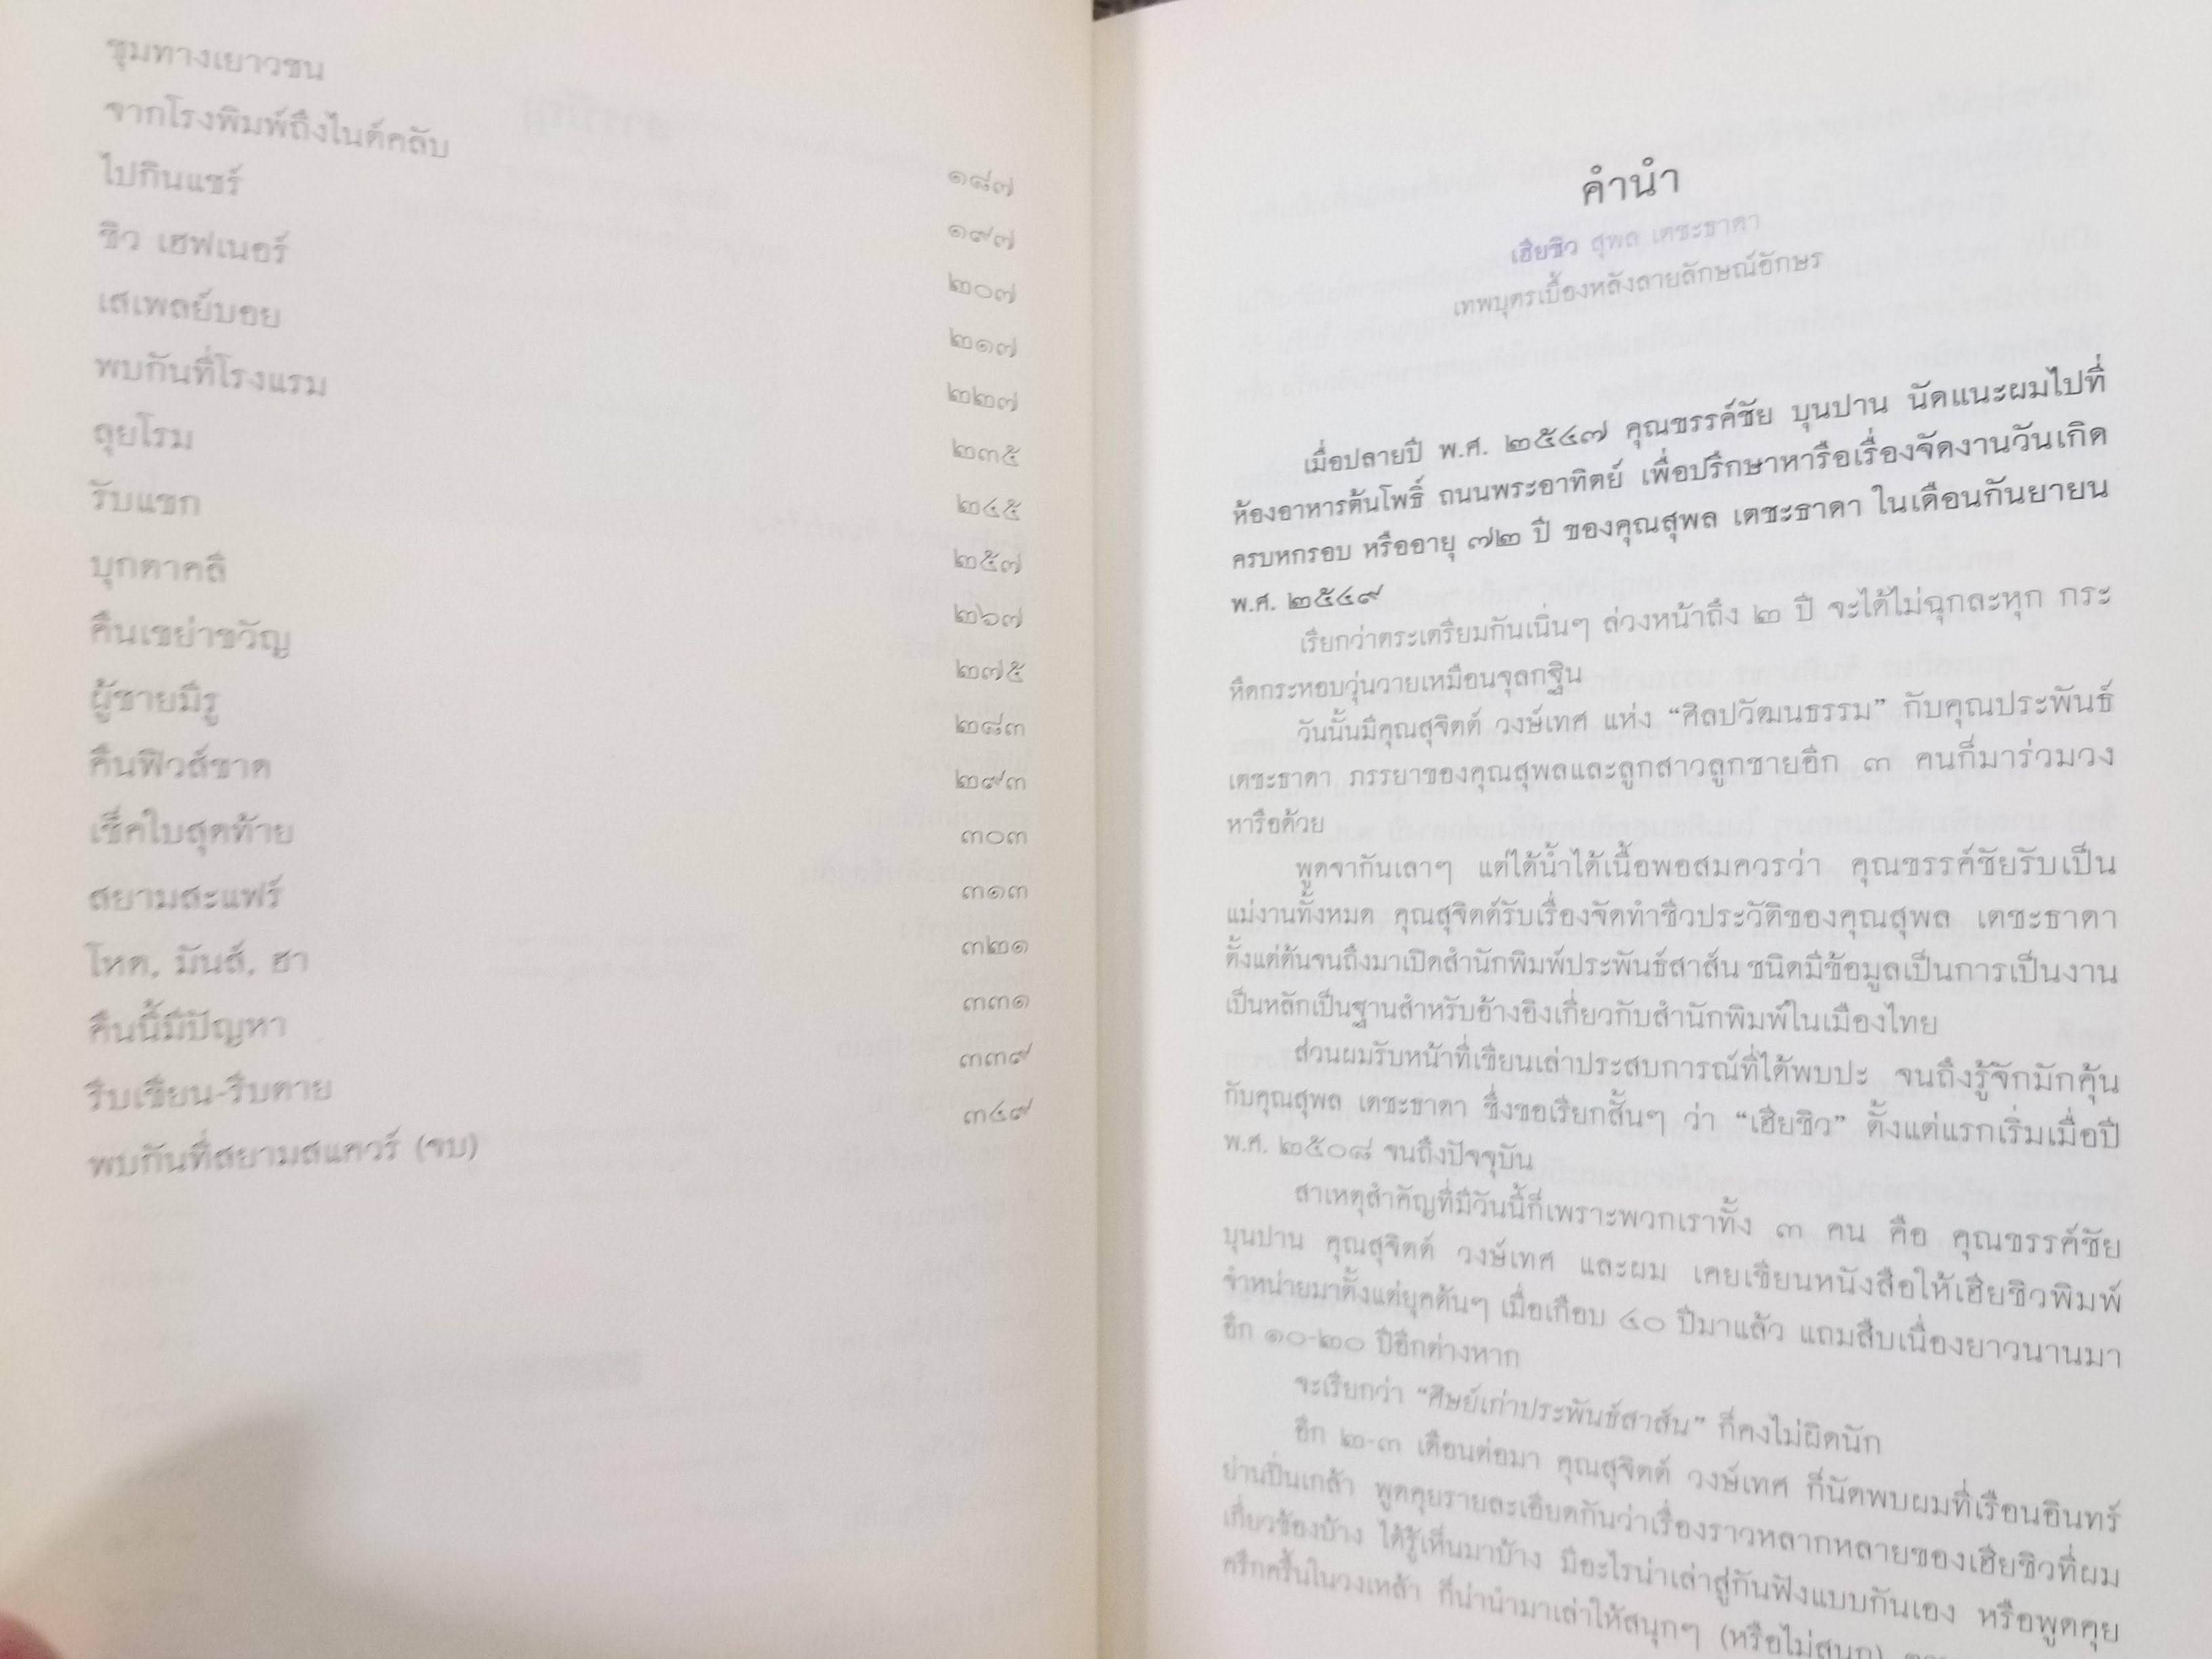 ชุมทางเยาวชน
จากโรงพิมพ์ถึงไนต์คลับ
ไปกินแชร์
ชิว เฮฟเนอร์
เสเพลย์บอย
พบกันที่โรงแรม
ลุยโรม
รับแขก
บุกตาคลี
คืนเขย่าขวัญ
ผู้ชายมีรู
คืนฟิวส์ขาด
เช็คใบสุดท้าย
สยามสะแฟร์
โหด, มันส์, ฮา
คืนนี้มีปัญหา
รีบเขียน-รีบตาย
พบกันที่สยามสแควร์ (จบ)
๑๘๗
๑๙๗
๒๐๗
๒๑๗
๒๒๗
๒๓๕
๒๔๕
๒๕๗
๒๖๗
๒๗๕
๒๘๓
๒๙๓
๓๐๓
๓๑๓
๓๒๑
๓๓๑
๓๓๙
๓๔๙
คำนำ
เฮียชิว สุพล เตชะธาดา
เทพบุตรเบื้องหลังลายลักษณ์อักษร
เมื่อปลายปี พ.ศ. ๒๕๔๗ คุณขรรค์ชัย บุนปาน นัดแนะผมไปที่
ห้องอาหารต้นโพธิ์ ถนนพระอาทิตย์ เพื่อปรึกษาหารือเรื่องจัดงานวันเกิด
ครบหกรอบ หรืออายุ ๗๒ ปี ของคุณสุพล เตชะธาดา ในเดือนกันยายน
พ.ศ. ๒๕๔๙
เรียกว่าตระเตรียมกันเนิ่นๆ ล่วงหน้าถึง ๒ ปี จะได้ไม่ฉุกละหุก กระ
หืดกระหอบวุ่นวายเหมือนจุลกฐิน
วันนั้นมีคุณสุจิตต์ วงษ์เทศ แห่ง “ศิลปวัฒนธรรม” กับคุณประพันธ์
เตชะธาดา ภรรยาของคุณสุพลและลูกสาวลูกชายอีก ๓ คนก็มาร่วมวง
หารือด้วย
พูดจากันเลาๆ แต่ได้น้ำได้เนื้อพอสมควรว่า คุณขรรค์ชัยรับเป็น
แม่งานทั้งหมด คุณสุจิตต์รับเรื่องจัดทำชีวประวัติของคุณสุพล เตชะธาดา
ตั้งแต่ต้นจนถึงมาเปิดสำนักพิมพ์ประพันธ์สาส์น ชนิดมีข้อมูลเป็นการเป็นงาน
เป็นหลักเป็นฐานสำหรับอ้างอิงเกี่ยวกับสำนักพิมพ์ในเมืองไทย
ส่วนผมรับหน้าที่เขียนเล่าประสบการณ์ที่ได้พบปะ จนถึงรู้จักมักคุ้น
กับคุณสุพล เตชะธาดา ซึ่งขอเรียกสั้นๆ ว่า “เฮียชิว” ตั้งแต่แรกเริ่มเมื่อปี
พ.ศ. ๒๕๐๘ จนถึงปัจจุบัน
สาเหตุสำคัญที่มีวันนี้ก็เพราะพวกเราทั้ง ๓ คน คือ คุณขรรค์ชัย
บุนปาน คุณสุจิตต์ วงษ์เทศ และผม เคยเขียนหนังสือให้เฮียชิวพิมพ์
จำหน่ายมาตั้งแต่ยุคต้นๆ เมื่อเกือบ ๔๐ ปีมาแล้ว แถมสืบเนื่องยาวนานมา
อีก ๑๐-๒๐ ปีอีกต่างหาก
จะเรียกว่า “ศิษย์เก่าประพันธ์สาส์น” ก็คงไม่ผิดนัก
อีก ๒-๓ เดือนต่อมา คุณสุจิตต์ วงษ์เทศ ก็นัดพบผมที่เรือนอินทร์
ย่านปิ่นเกล้า พูดคุยรายละเอียดกันว่าเรื่องราวหลากหลายของเฮียชิวที่ผม
เกี่ยวข้องบ้าง ได้รู้เห็นมาบ้าง มีอะไรน่าเล่าสู่กันฟังแบบกันเอง หรือพูดคุย
ครึกครื้นในวงเหล้า ก็น่านำมาเล่าให้สนุกๆ (หรือไม่สนุก)